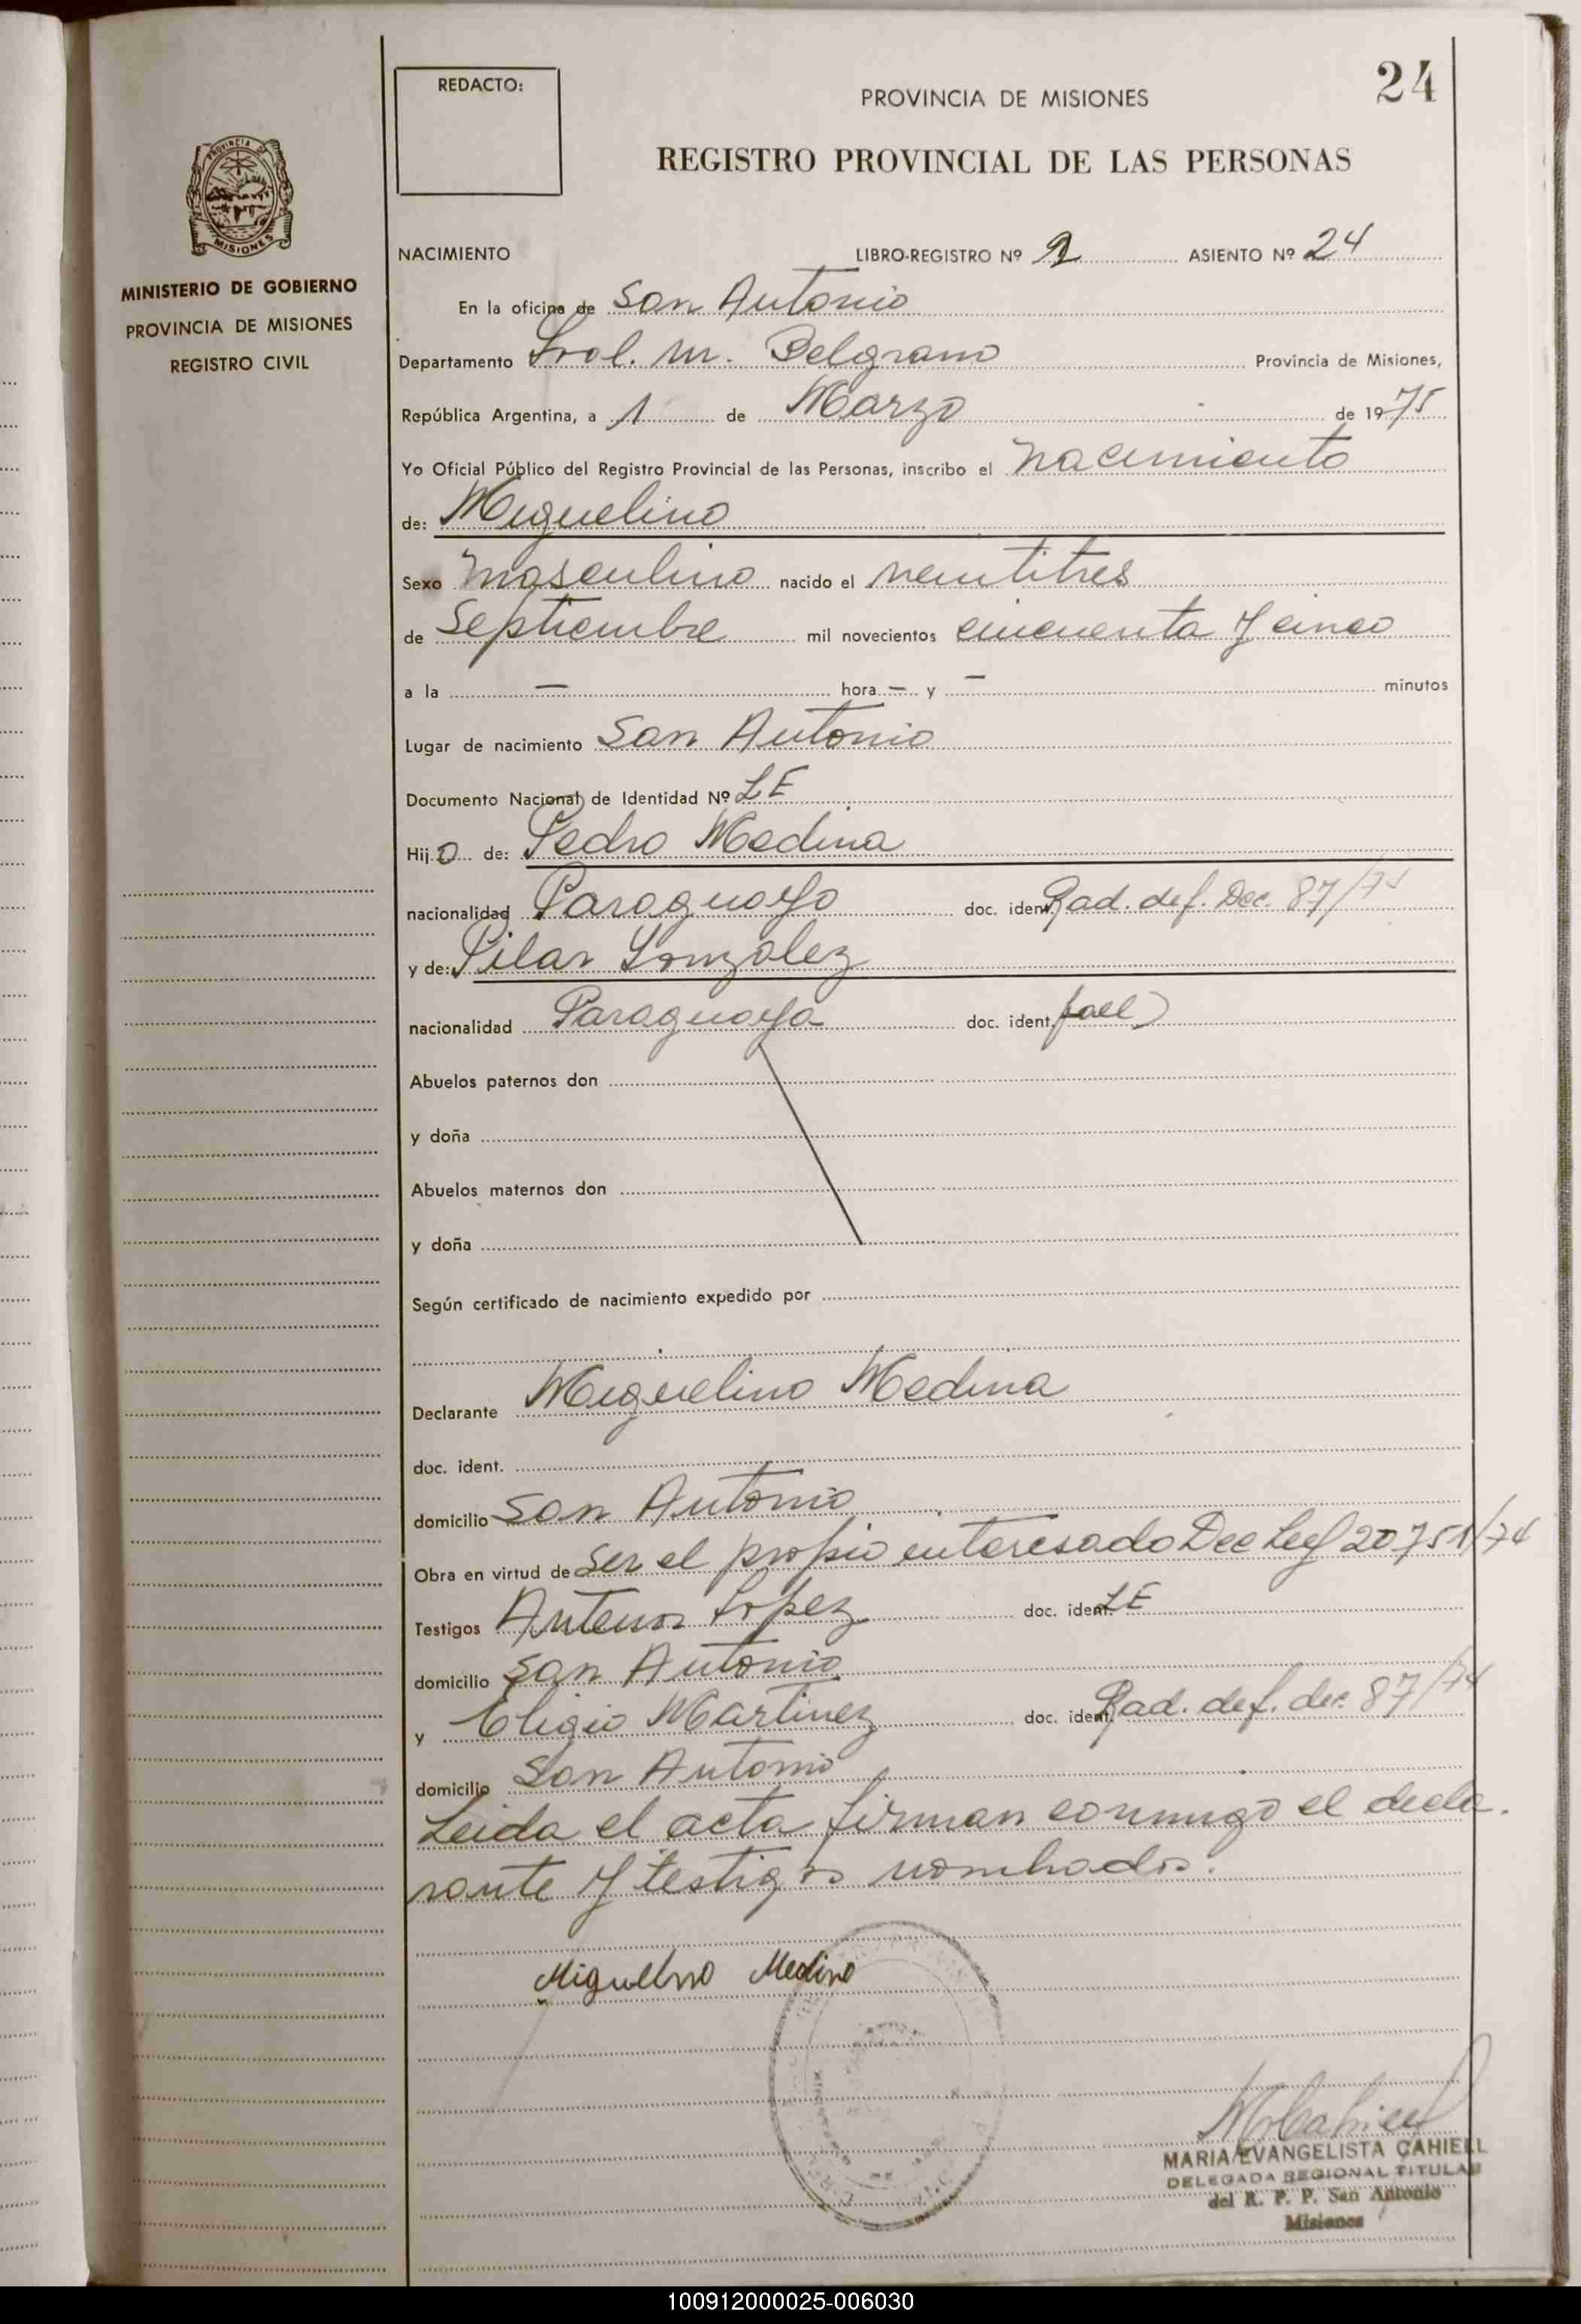 24
REDACTO:
PROVINCIA DE MISIONES
REGISTRO PROVINCIAL DE LAS PERSONAS
PROVINCIA DE
MISIONES
MINISTERIO DE GOBIERNO
PROVINCIA DE MISIONES
REGISTRO CIVIL
NACIMIENTO LIBRO-REGISTRO Nº 2 ASIENTO Nº 24
En la oficina de San Antonio
Departamento Gral. M. Belgrano Provincia de Misiones,
República Argentina, a 1 de Marzo de 1975
Yo Oficial Público del Registro Provincial de las Personas, inscribo el nacimiento
de: Miguelino
Sexo masculino nacido el veintitres
de Septiembre mil novecientos cincuenta y cinco
a la — hora — y — minutos
Lugar de nacimiento San Antonio
Documento Nacional de Identidad Nº LE
Hijo de: Pedro Medina
nacionalidad Paraguayo doc. ident. Rad. def. Dec. 87/74
y de: Pilar Gonzalez
nacionalidad Paraguaya doc. ident.
Abuelos paternos don
y doña
Abuelos maternos don
y doña
Según certificado de nacimiento expedido por
Declarante Miguelino Medina
doc. ident.
domicilio San Antonio
Obra en virtud de Ser el propio interesado Dec Ley 20.751/74
Testigos Antenor Lopez doc. ident. LE
domicilio San Antonio
y Eligio Martinez doc. ident. Rad. def. dec. 87/74
domicilio San Antonio
Leida el acta firman conmigo el decla.
rante y testigos nombrados.
Miguelino Medina
MARIA EVANGELISTA CAHIELL
DELEGADA REGIONAL TITULAR
del R. P. P. San Antonio
Misiones
100912000025-006030